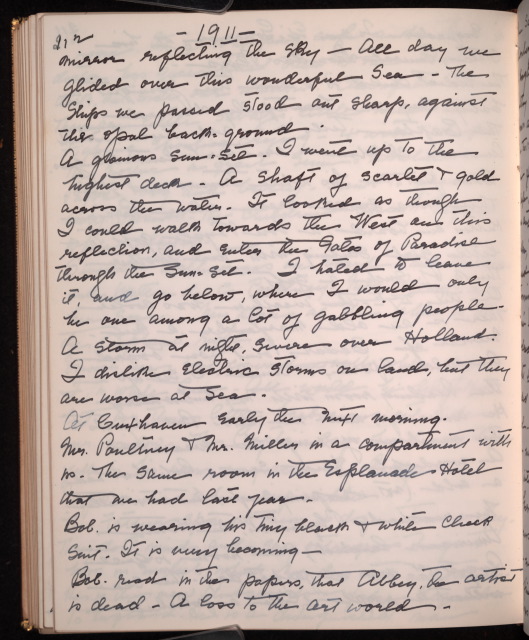 212
- 1911 -
mirror reflecting the sky - All day we
glided over this wonderful Sea - The
Ships we passed stood out sharp, against
the opal back-ground.
A glorious Sun-set. I went up to the
highest deck - A shaft of scarlet & gold
across the water. It looked as though
I could walk towards the West on this
reflection, and enter the Gates of Paradise
through the Sun-set. I hated to leave
it, and go below, where I would only
be one among a lot of gabbling people -
A storm at night, severe over Holland.
I dislike Electric storms on land, but they
are worse at Sea.
At Cuxhaven early the next morning.
Mrs. Poultney & Mr. Miller in a compartment with
us. The same room in the Esplanade Hotel
that we had last year.
Bob. is wearing his tiny black & white check
Suit. It is very becoming -
Bob. read in the papers, that Abbey, the artist
is dead - A loss to the art world -